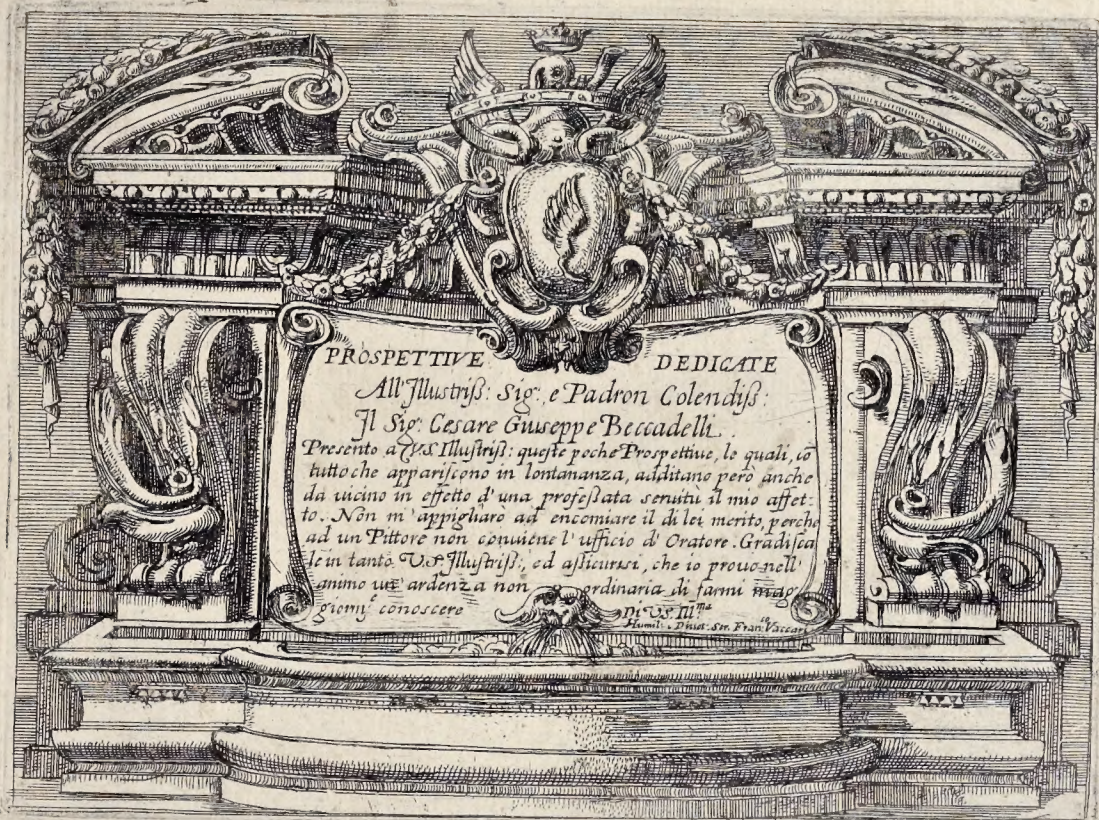 PROSPETTIVE DEDICATE
All' Illustriss: Sig:, e Padron Colendiss:
Il Sig: Cesare Giuseppe Beccadelli
Presento a V.S. Illustriss: queste poche Prospettive, le quali, cō
tutto che appariscono in lontananza, additano però anche
da uicino in effetto d' una professata seruitù il mio affet:
to. Non m' appigliarò ad encomiare il di lei merito, perche
ad un Pittore non conuiene l' ufficio d' Oratore. Gradisca
le in tanto V.S. Illustriss:, ed assicurisi, che io prouo nell'
animo un' ardenza non ordinaria di farmi mag
giormẽ conoscere Di V.S. Ill.ma
Humil: e Diuot: Ser. Fran.co Vaccari